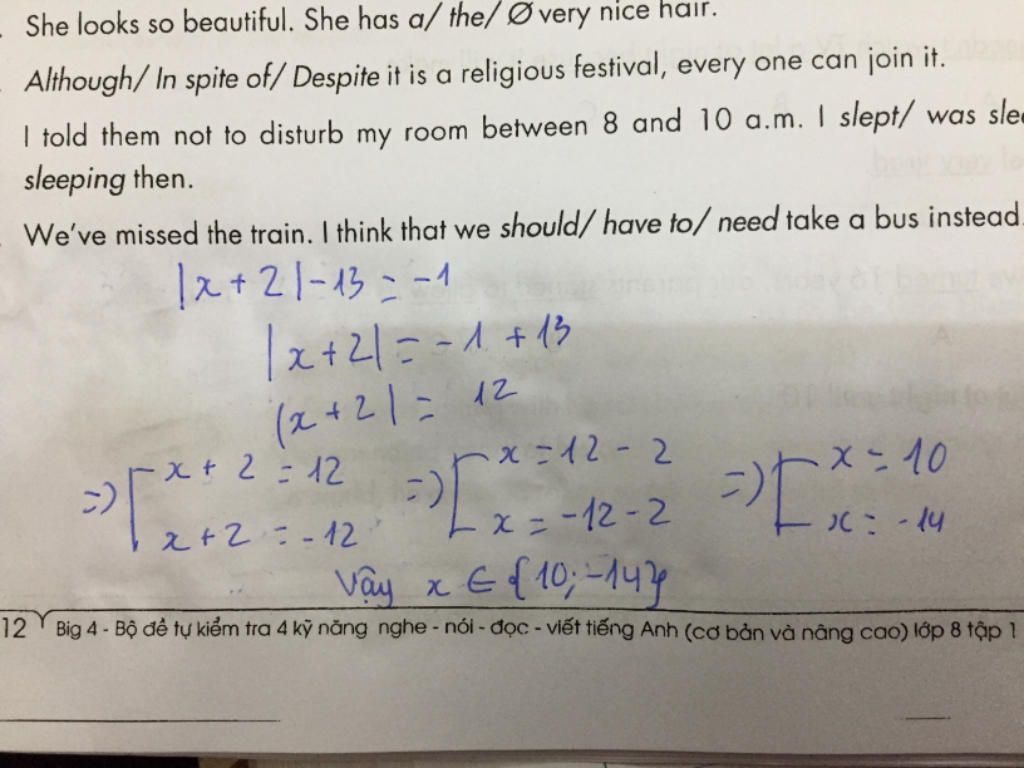 She looks so beautiful. She has a/ the/ Ø very nice hair.
Although/ In spite of/ Despite it is a religious festival, every one can join it.
I told them not to disturb my room between 8 and 10 a.m. I slept/ was
sleeping then.
We've missed the train. I think that we should/ have to/ need take a bus instead.
|x + 2| - 13 = -1
|x + 2| = -1 + 13
|x + 2| = 12
=> [ x + 2 = 12 => [ x = 12 - 2 => [ x = 10
x + 2 = -12 x = -12 - 2 x = -14
Vậy x ∈ {10; -14}
12 Big 4 - Bộ đề tự kiểm tra 4 kỹ năng nghe - nói - đọc - viết tiếng Anh (cơ bản và nâng cao) lớp 8 tập 1